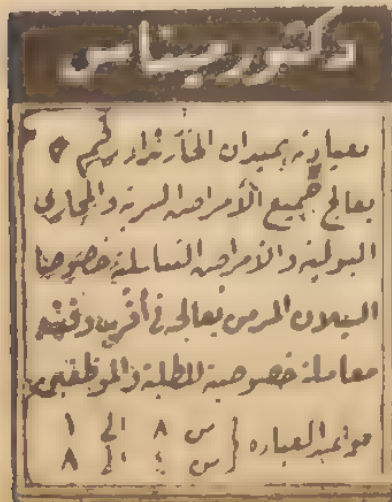 دكتور ميناس
بعيادته بميدان الخازندار رقم ٥
يعالج جميع الأمراض السرية والمجاري
البولية والأمراض التناسلية خصوصا
السيلان المزمن يعالجه في أقرب وقت
معاملة خصوصية للطلبة والموظفين
مواعيد العياده { من ٨ الى ١
من ٤ الى ٨